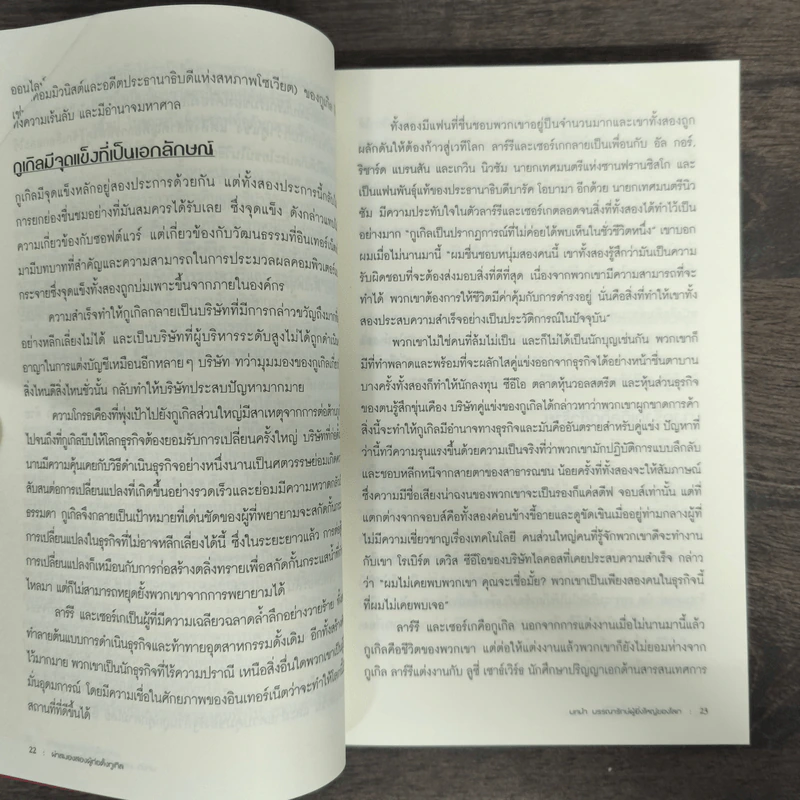 ออนไลน์
คอมมิวนิสต์และอดีตประธานาธิบดีแห่งสหภาพโซเวียต) ของกูเกิล
ถึงความเร้นลับ และมีอำนาจมหาศาล
กูเกิลมีจุดแข็งที่เป็นเอกลักษณ์
กูเกิลมีจุดแข็งหลักอยู่สองประการด้วยกัน แต่ทั้งสองประการนี้กลับ
การยกย่องชื่นชมอย่างที่มันสมควรได้รับเลย ซึ่งจุดแข็ง ดังกล่าวแทบ
ความเกี่ยวข้องกับซอฟต์แวร์ แต่เกี่ยวข้องกับวัฒนธรรมที่อินเทอร์เน็ต
มามีบทบาทที่สำคัญและความสามารถในการประมวลผลคอมพิวเตอร์
กระจายซึ่งจุดแข็งทั้งสองถูกบ่มเพาะขึ้นจากภายในองค์กร
ความสำเร็จทำให้กูเกิลกลายเป็นบริษัทที่มีการกล่าวขวัญถึงมาก
อย่างหลีกเลี่ยงไม่ได้ และเป็นบริษัทที่ผู้บริหารระดับสูงไม่ได้ถูกดำเนิน
อาญาในการแต่งบัญชีเหมือนอีกหลายๆ บริษัท ทว่ามุมมองของกูเกิล
สิ่งไหนดีสิ่งไหนชั่วนั้น กลับทำให้บริษัทประสบปัญหามากมาย
ความโกรธเคืองที่พุ่งเป้าไปยังกูเกิลส่วนใหญ่มีสาเหตุจากการต่อต้าน
ไปจนถึงที่กูเกิลบีบให้โลกธุรกิจต้องยอมรับการเปลี่ยนครั้งใหญ่ บริษัทที่
นานมีความคุ้นเคยกับวิธีดำเนินธุรกิจอย่างหนึ่งนานเป็นศตวรรษย่อมเกิด
สับสนต่อการเปลี่ยนแปลงที่เกิดขึ้นอย่างรวดเร็วและย่อมมีความหวาดกลัว
ธรรมดา กูเกิลจึงกลายเป็นเป้าหมายที่เด่นชัดของผู้ที่พยายามจะสกัดกั้น
การเปลี่ยนแปลงในธุรกิจที่ไม่อาจหลีกเลี่ยงได้นี้ ซึ่งในระยะยาวแล้ว การ
การเปลี่ยนแปลงก็เหมือนกับการก่อสร้างตลิ่งทรายเพื่อสกัดกั้นกระแสน้ำ
ไหลมา แต่ก็ไม่สามารถหยุดยั้งพวกเขาจากการพยายามได้
ลาร์รี และเซอร์เกเป็นผู้ที่มีความเฉลียวฉลาดล้ำลึกอย่างวายร้าย
ทำลายต้นแบบการดำเนินธุรกิจและท้าทายอุตสาหกรรมดั้งเดิม อีกทั้งสร้าง
ไว้มากมาย พวกเขาเป็นนักธุรกิจที่ไร้ความปราณี เหนือสิ่งอื่นใดพวกเขา
มั่นอุดมการณ์ โดยมีความเชื่อในศักยภาพของอินเทอร์เน็ตว่าจะทำให้
สถานที่ที่ดีขึ้นได้
22 | ผ่าสมองสองผู้ก่อตั้งกูเกิล
ทั้งสองมีแฟนที่ชื่นชอบพวกเขาอยู่เป็นจำนวนมากและเขาทั้งสองถูก
ผลักดันให้ต้องก้าวสู่เวทีโลก ลาร์รีและเซอร์เกกลายเป็นเพื่อนกับ อัล กอร์,
ริชาร์ด แบรนสัน และเกวิน นิวซัม นายกเทศมนตรีแห่งซานฟรานซิสโก และ
เป็นแฟนพันธุ์แท้ของประธานาธิบดีบารัค โอบามา อีกด้วย นายกเทศมนตรีนิว
ซัม มีความประทับใจในตัวลาร์รีและเซอร์เกตลอดจนสิ่งที่ทั้งสองได้ทำไว้เป็น
อย่างมาก "กูเกิลเป็นปรากฏการณ์ที่ไม่ค่อยได้พบเห็นในชั่วชีวิตหนึ่ง" เขาบอก
ผมเมื่อไม่นานมานี้ "ผมชื่นชอบหนุ่มสองคนนี้ เขาทั้งสองรู้สึกว่ามันเป็นความ
รับผิดชอบที่จะต้องส่งมอบสิ่งที่ดีที่สุด เนื่องจากพวกเขามีความสามารถที่จะ
ทำได้ พวกเขาต้องการให้ชีวิตมีค่าคุ้มกับการดำรงอยู่ นั่นคือสิ่งที่ทำให้เขาทั้ง
สองประสบความสำเร็จอย่างเป็นประวัติการณ์ในปัจจุบัน"
พวกเขาไม่ใช่คนที่ล้มไม่เป็น และก็ไม่ได้เป็นนักบุญเช่นกัน พวกเขาก็
มีที่ทำพลาดและพร้อมที่จะผลักไสคู่แข่งออกจากธุรกิจได้อย่างหน้าชื่นตาบาน
บางครั้งทั้งสองก็ทำให้นักลงทุน ซีอีโอ ตลาดหุ้นวอลสตรีต และหุ้นส่วนธุรกิจ
ของตนรู้สึกขุ่นเคือง บริษัทคู่แข่งของกูเกิลได้กล่าวหาว่าพวกเขาผูกขาดการค้า
สิ่งนี้จะทำให้กูเกิลมีอำนาจทางธุรกิจและมันคืออันตรายสำหรับคู่แข่ง ปัญหาที่
ว่านี้ทวีความรุนแรงขึ้นด้วยความเป็นจริงที่ว่าพวกเขามักปฏิบัติการแบบลึกลับ
และชอบหลีกหนีจากสายตาของสาธารณชน น้อยครั้งที่ทั้งสองจะให้สัมภาษณ์
ซึ่งความมีชื่อเสียงน่าฉงนของพวกเขาจะเป็นรองก็แค่สตีฟ จอบส์เท่านั้น แต่ที่
แตกต่างจากจอบส์คือทั้งสองค่อนข้างขี้อายและดูขัดเขินเมื่ออยู่ท่ามกลางผู้ที่
ไม่มีความเชี่ยวชาญเรื่องเทคโนโลยี คนส่วนใหญ่คนที่รู้จักพวกเขาดีจะทำงาน
กับเขา โรเบิร์ต เดวิส ซีอีโอของบริษัทไลคอสที่เคยประสบความสำเร็จ กล่าว
ว่า "ผมไม่เคยพบพวกเขา คุณจะเชื่อมั้ย? พวกเขาเป็นเพียงสองคนในธุรกิจนี้
ที่ผมไม่เคยพบเจอ"
ลาร์รี และเซอร์เกคือกูเกิล นอกจากการแต่งงานเมื่อไม่นานมานี้แล้ว
กูเกิลคือชีวิตของพวกเขา แต่ต่อให้แต่งงานแล้วพวกเขาก็ยังไม่ยอมห่างจาก
กูเกิล ลาร์รีแต่งงานกับ ลูซี่ เซาธ์เวิร์ธ นักศึกษาปริญญาเอกด้านสารสนเทศการ
บทนำ บรรณารักษ์ผู้ยิ่งใหญ่ของโลก | 23